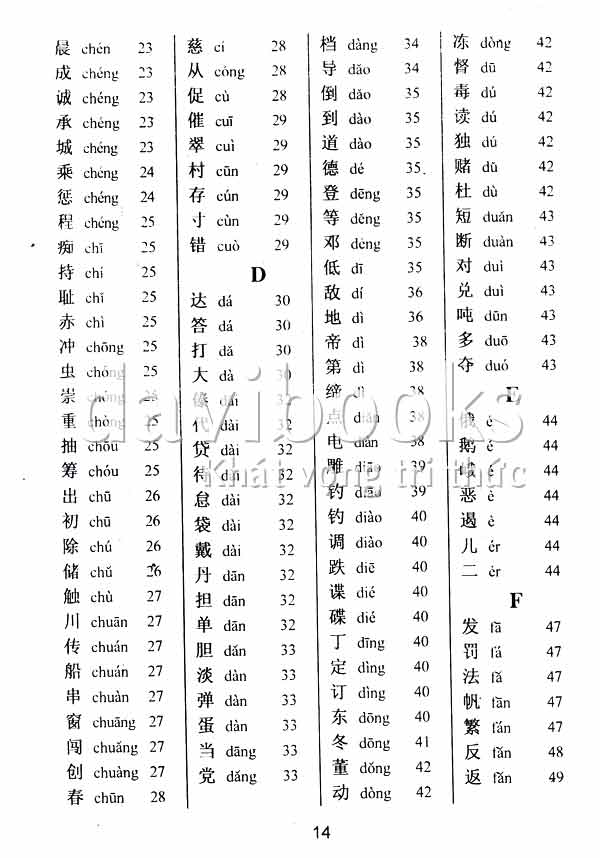 晨 chén 23
成 chéng 23
诚 chéng 23
承 chéng 23
城 chéng 23
乘 chéng 24
惩 chéng 24
程 chéng 25
痴 chī 25
持 chí 25
耻 chǐ 25
赤 chì 25
冲 chōng 25
虫 chóng 25
崇 chóng 25
重 chòng 25
抽 chōu 25
筹 chóu 25
出 chū 26
初 chū 26
除 chú 26
储 chǔ 26
触 chù 27
川 chuān 27
传 chuán 27
船 chuán 27
串 chuàn 27
窗 chuāng 27
闯 chuǎng 27
创 chuàng 27
春 chūn 28
慈 cí 28
从 cóng 28
促 cù 28
催 cuī 29
翠 cuì 29
村 cūn 29
存 cún 29
寸 cùn 29
错 cuò 29
D
达 dá 30
答 dá 30
打 dǎ 30
大 dà 30
dǎi 32
代 dài 32
贷 dài 32
待 dài 32
怠 dài 32
袋 dài 32
戴 dài 32
丹 dān 32
担 dān 32
单 dān 32
胆 dǎn 33
淡 dàn 33
弹 dàn 33
蛋 dàn 33
当 dāng 33
党 dǎng 33
档 dàng 34
导 dǎo 34
倒 dǎo 35
到 dào 35
道 dào 35
德 dé 35
登 dēng 35
等 děng 35
邓 dèng 35
低 dī 35
敌 dí 36
地 dì 36
帝 dì 38
第 dì 38
缔 dì 38
点 diǎn 38
电 diàn 38
雕 diāo 39
钓 diào 39
钓 diào 40
调 diào 40
跌 diē 40
谍 dié 40
碟 dié 40
丁 dīng 40
定 dìng 40
订 dìng 40
东 dōng 40
冬 dōng 41
董 dǒng 42
动 dòng 42
冻 dòng 42
督 dū 42
毒 dú 42
读 dú 42
独 dú 42
赌 dǔ 42
杜 dù 42
短 duǎn 43
断 duàn 43
对 duì 43
兑 duì 43
吨 dūn 43
多 duō 43
夺 duó 43
E
俄 é 44
鹅 é 44
峨 é 44
恶 è 44
遏 è 44
儿 ér 44
二 èr 44
F
发 fā 47
罚 fá 47
法 fǎ 47
帆 fān 47
繁 fán 47
反 fǎn 48
返 fǎn 49
14
davibooks
Khát vọng tri thức